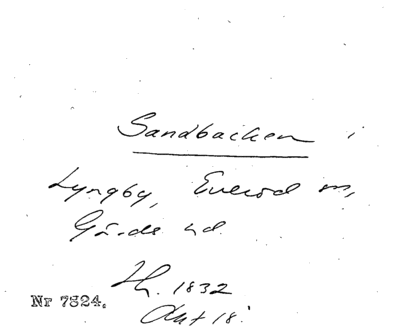 Sandbacken i
Lyngby, Everöd sn,
Gärds hd.
Lh. 1832
Akt 18.
Nr 7324.